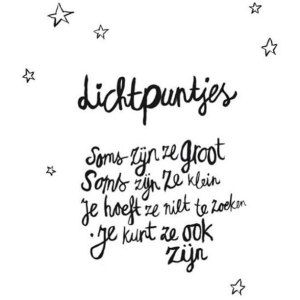 lichtpuntjes
Soms zijn ze groot
Soms zijn ze klein
je hoeft ze niet te zoeken
. je kunt ze ook
zijn